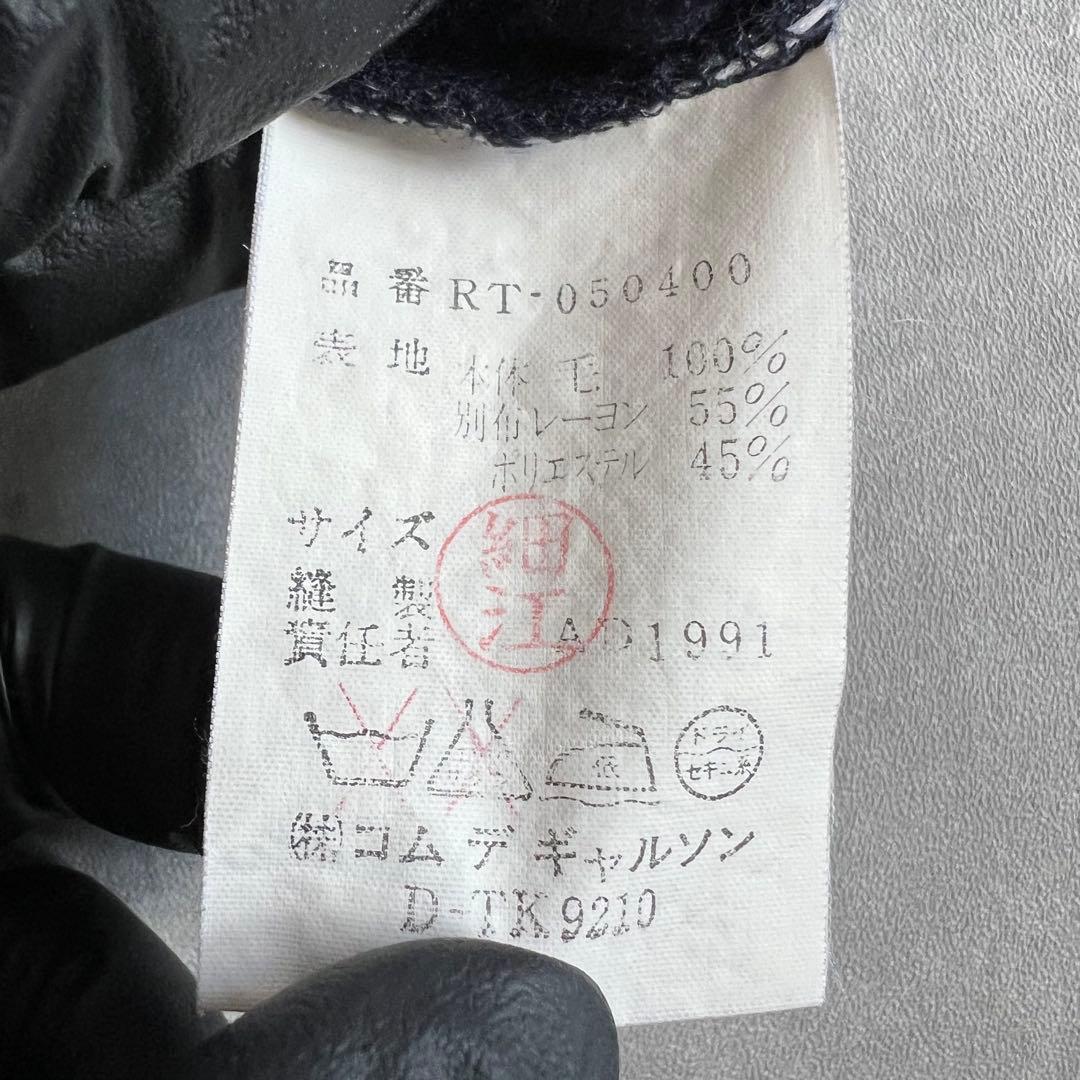 品番 RT-050400
表地 本体 毛 100%
別布 レーヨン 55%
ポリエステル 45%
サイズ
細江
縫製
責任者 AD1991
低
ドライ
セキユ系
㈱コム デ ギャルソン
D-TK9210